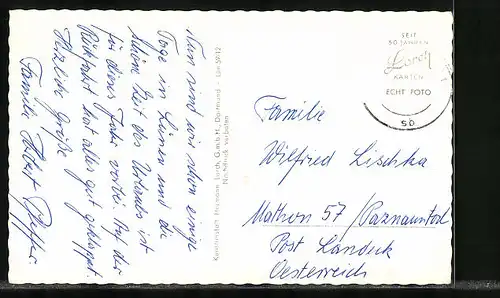 Nun sind wir schon einige
Tage in Lünen und die
schöne Zeit des Urlaubs ist
für dieses Jahr vorbei. Auf der
Rückfahrt hat alles gut geklappt.
Herzliche Grüße
Familie Hubert
Nachdruck verboten
SEIT
50 JAHREN
Lorch
KARTEN
ECHT FOTO
Familie
Wilfried Lischka
Mathon 57 / Paznauntal
Post Landeck
Oesterreich